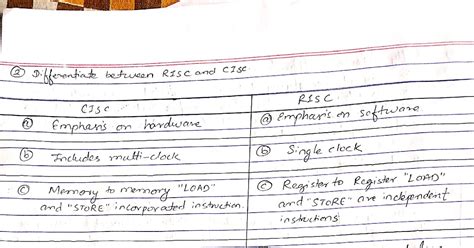 ② Differentiate between RISC and CISC
CISC
RISC
ⓐ Emphasis on hardware
ⓐ Emphasis on software
ⓑ Includes multi-clock
ⓑ Single clock
ⓒ Memory to memory "LOAD"
and "STORE" incorporated instruction.
ⓒ Register to Register "LOAD"
and "STORE" are independent
instructions